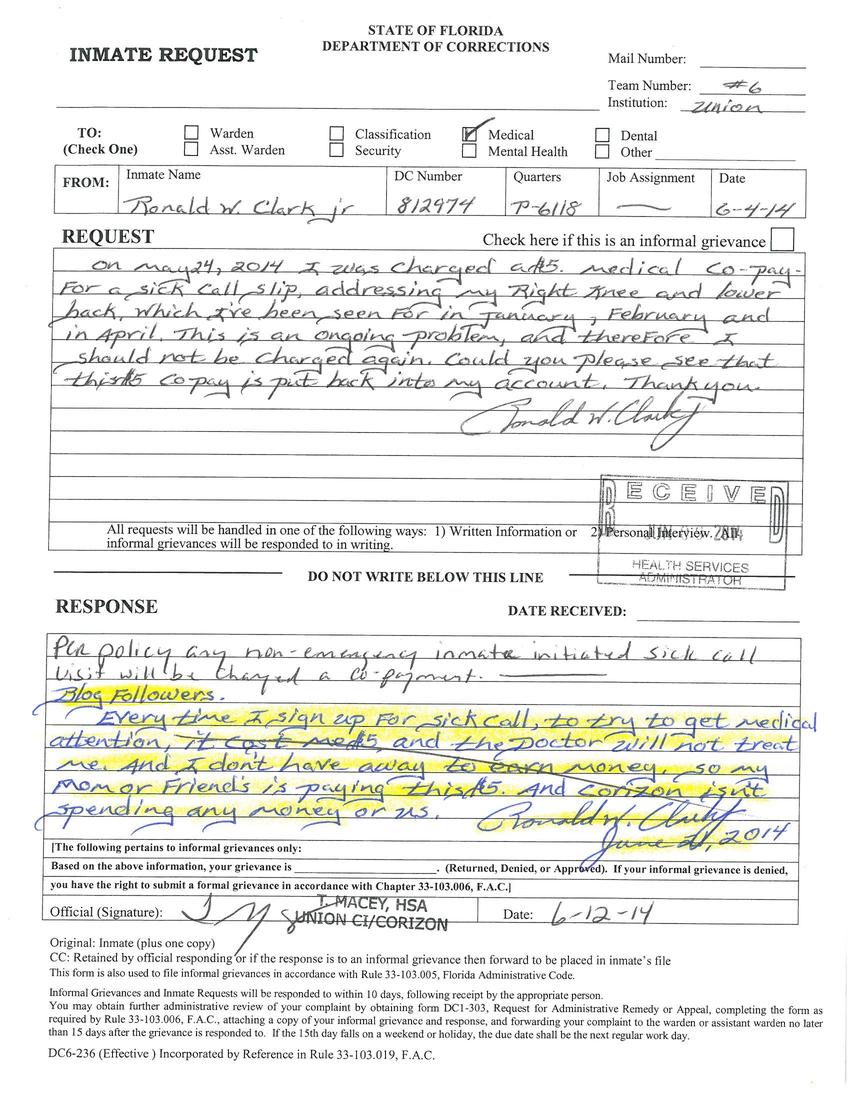 STATE OF FLORIDA
DEPARTMENT OF CORRECTIONS
INMATE REQUEST
Mail Number:
Team Number: #6
Institution: Union
TO: Warden Classification Medical Dental
(Check One) Asst. Warden Security Mental Health Other
FROM: Inmate Name DC Number Quarters Job Assignment Date
Ronald W. Clark jr 812974 P-6118 — 6-4-14
REQUEST Check here if this is an informal grievance
On may 24, 2014 I was charged a $5. medical co-pay-
For a sick call slip, addressing my Right Knee and lower
back, which I've been seen For in January, February and
in April. This is an ongoing problem, and thereFore I
should not be charged again. Could you please see that
this $5 copay is put back into my account. Thank you.
Ronald W. Clark Jr
RECEIVED
2014
HEALTH SERVICES
ADMINISTRATOR
All requests will be handled in one of the following ways: 1) Written Information or 2) Personal Interview. All
informal grievances will be responded to in writing.
DO NOT WRITE BELOW THIS LINE
RESPONSE DATE RECEIVED:
Per policy any non-emergency inmate initiated sick call
visit will be charged a co-payment.
Blog Followers.
Every time I sign up For sick call, to try to get medical
attention, it cost me $5, and the Doctor will not treat
me. And I don't have away to earn money, so my
Mom or Friend's is paying this $5. And Corizon isn't
spending any money or us.
Ronald W. Clark Jr
June 21, 2014
[The following pertains to informal grievances only:
Based on the above information, your grievance is . (Returned, Denied, or Approved). If your informal grievance is denied,
you have the right to submit a formal grievance in accordance with Chapter 33-103.006, F.A.C.]
T. MACEY, HSA
UNION CI/CORIZON
Official (Signature): Date: 6-12-14
Original: Inmate (plus one copy)
CC: Retained by official responding or if the response is to an informal grievance then forward to be placed in inmate's file
This form is also used to file informal grievances in accordance with Rule 33-103.005, Florida Administrative Code.
Informal Grievances and Inmate Requests will be responded to within 10 days, following receipt by the appropriate person.
You may obtain further administrative review of your complaint by obtaining form DC1-303, Request for Administrative Remedy or Appeal, completing the form as
required by Rule 33-103.006, F.A.C., attaching a copy of your informal grievance and response, and forwarding your complaint to the warden or assistant warden no later
than 15 days after the grievance is responded to. If the 15th day falls on a weekend or holiday, the due date shall be the next regular work day.
DC6-236 (Effective ) Incorporated by Reference in Rule 33-103.019, F.A.C.